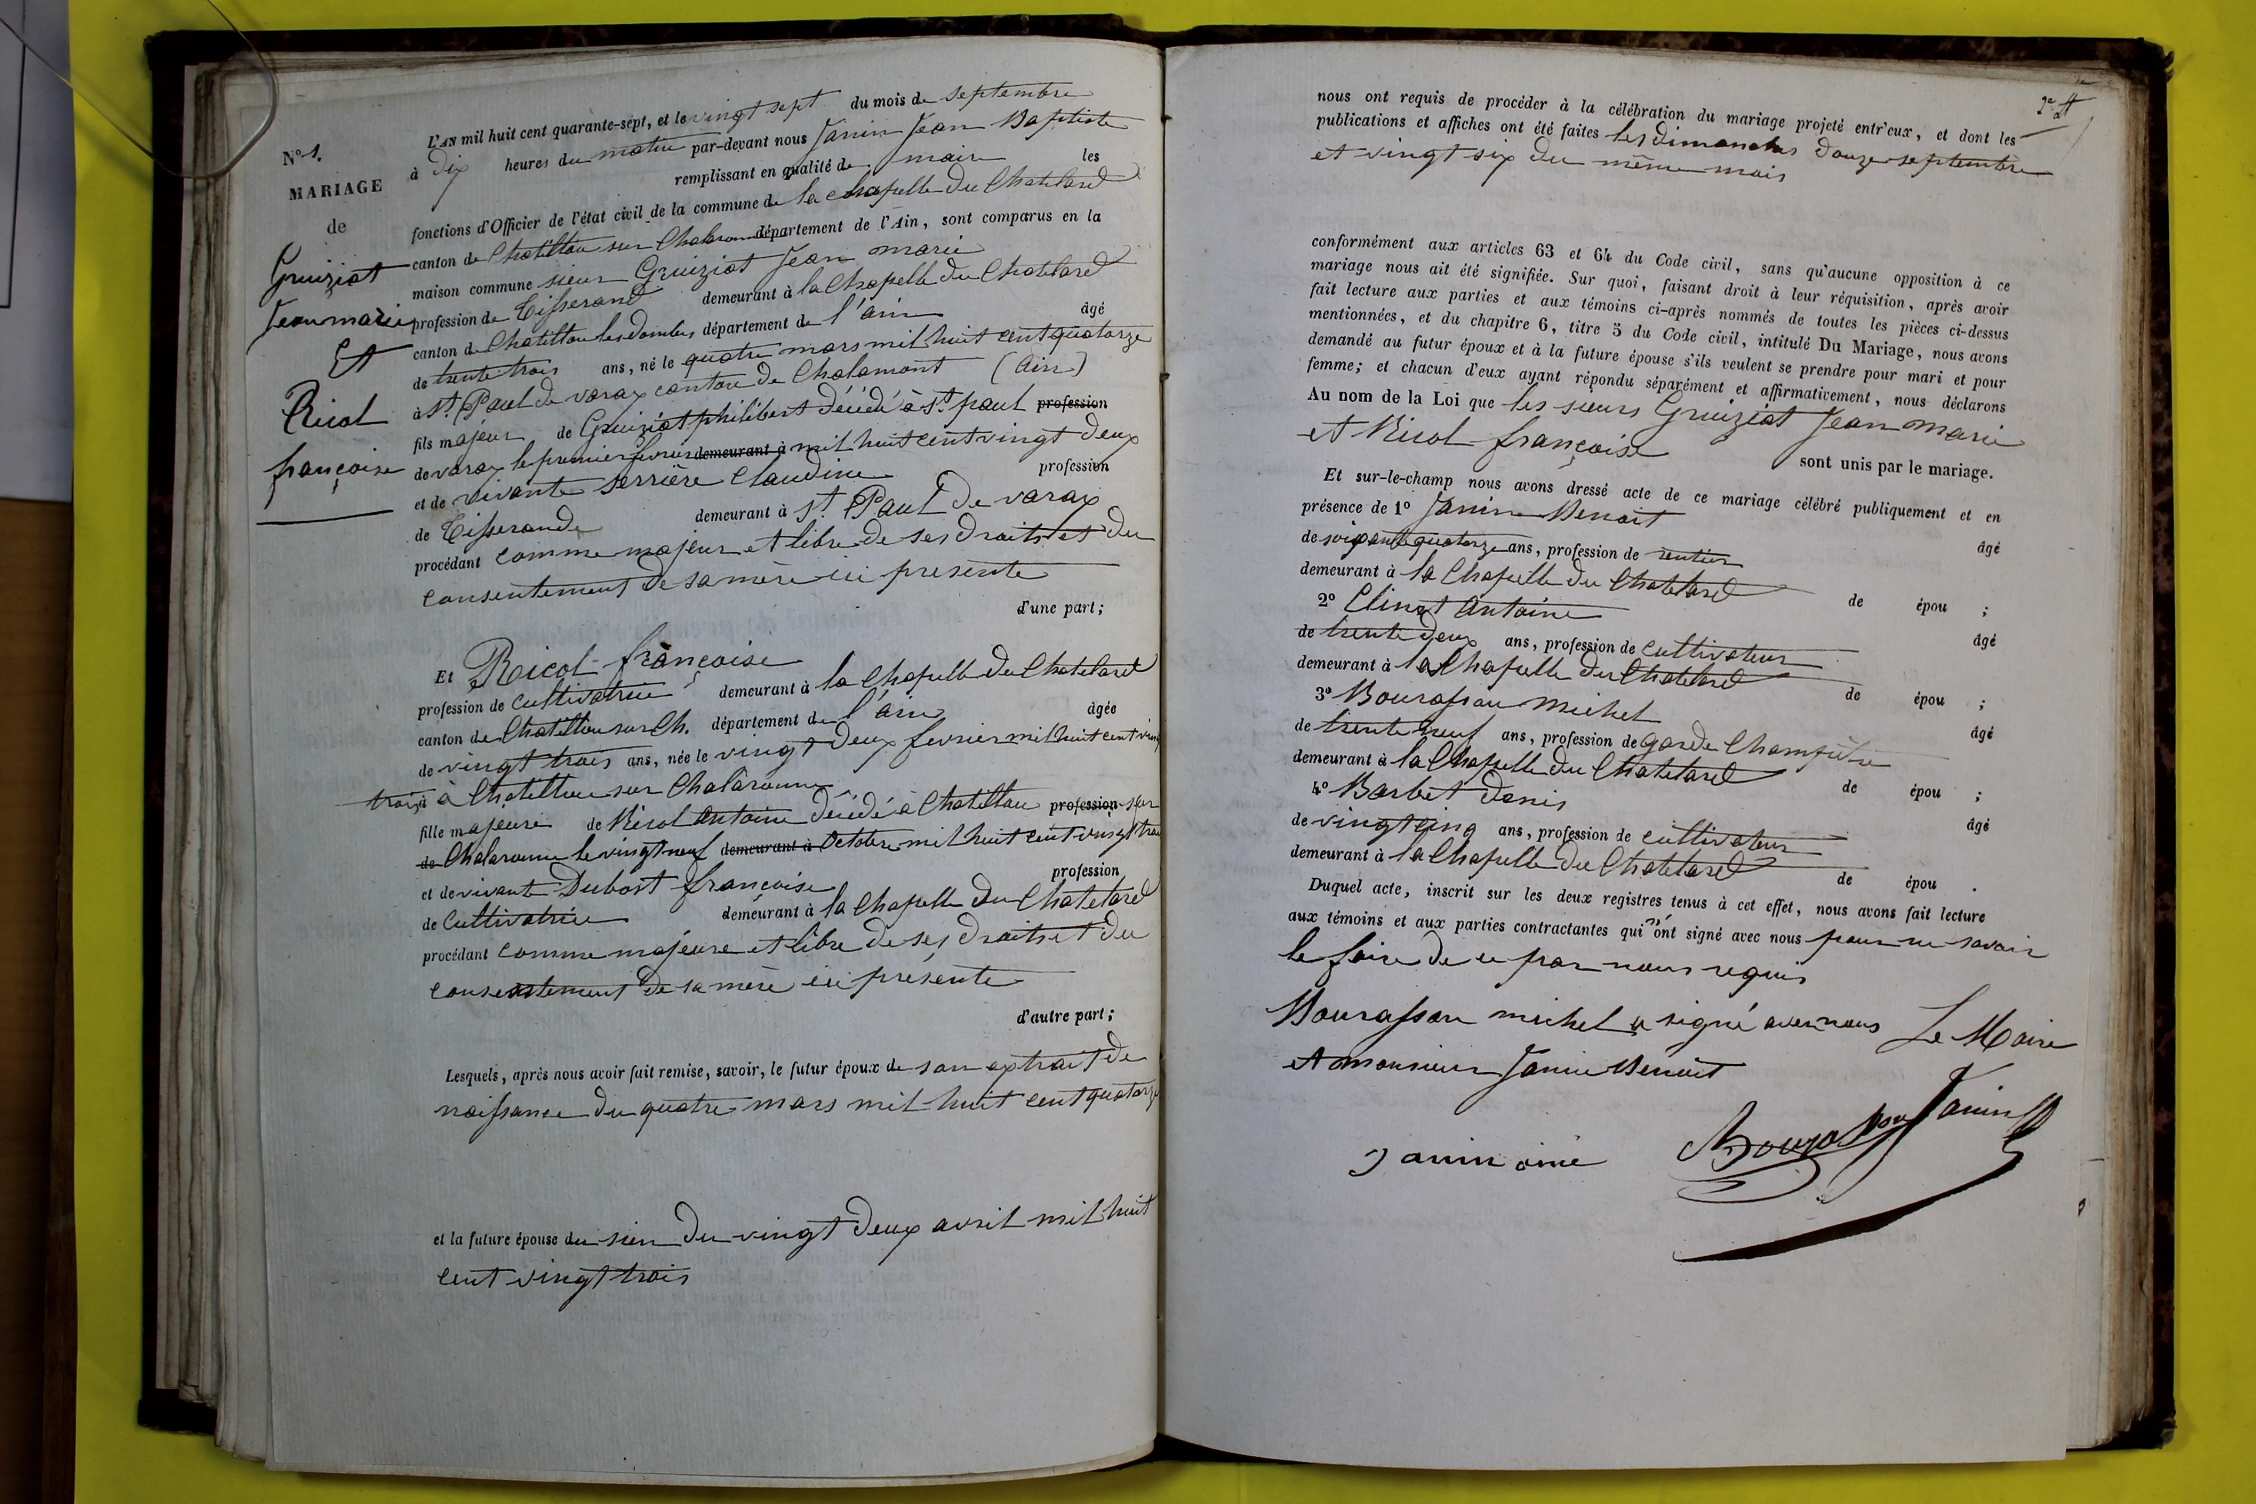 N° 1.
MARIAGE
de
Gruiziat
Jean marie
Et
Ricol
françoise
L'AN mil huit cent quarante-sept, et le vingt sept du mois de septembre
à dix heures du matin par-devant nous Janin Jean Baptiste
remplissant en qualité de maire les
fonctions d'Officier de l'état civil de la commune de la chapelle du Chatelard
canton de Chatillon sur Chalaronne département de l'Ain, sont comparus en la
maison commune sieur Gruiziat Jean marie
profession de Tisserand demeurant à la Chapelle du Chatelard
canton de Chatillon les dombes département de l'ain âgé
de trente trois ans, né le quatre mars mil huit cent quatorze
à St. Paul de varax canton de Chalamont (Ain)
fils majeur de Gruiziat philibert décédé à St. paul profession
de varax le premier fevrier demeurant à mil huit cent vingt deux
et de vivante Serrière Claudine profession
de Tisserande demeurant à St. Paul de varax
procédant comme majeur et libre de ses droits et du
consentement de sa mère ici presente
d'une part;
Et Ricol françoise
profession de cultivatrice demeurant à la Chapelle du Chatelard
canton de Chatillon sur Ch. département de l'ain âgée
de vingt trois ans, née le vingt deux fevrier mil huit cent vingt
trois à à Chatillon sur Chalaronne
fille majeure de Ricol Antoine décédé à Chatillon profession sur
de Chalaronne le vingt neuf demeurant à Octobre mil huit cent vingt trois
et de vivante Dubost françoise profession
de cultivatrice demeurant à la Chapelle du Chatelard
procédant comme majeure et libre de ses droits et du
consentement de sa mère ici présente
d'autre part;
Lesquels, après nous avoir fait remise, savoir, le futur époux de son extrait de
naissance du quatre mars mil huit cent quatorze
et la future épouse du sien du vingt deux avril mil huit
cent vingt trois
nous ont requis de procéder à la célébration du mariage projeté entr'eux, et dont les
publications et affiches ont été faites les dimanches douze septembre
et vingt six du même mois
conformément aux articles 63 et 64 du Code civil, sans qu'aucune opposition à ce
mariage nous ait été signifiée. Sur quoi, faisant droit à leur réquisition, après avoir
fait lecture aux parties et aux témoins ci-après nommés de toutes les pièces ci-dessus
mentionnées, et du chapitre 6, titre 5 du Code civil, intitulé Du Mariage, nous avons
demandé au futur époux et à la future épouse s'ils veulent se prendre pour mari et pour
femme; et chacun d'eux ayant répondu séparément et affirmativement, nous déclarons
Au nom de la Loi que les sieurs Gruiziat Jean marie
et Ricol françoise sont unis par le mariage.
Et sur-le-champ nous avons dressé acte de ce mariage célébré publiquement et en
présence de 1° Janin Benoit âgé
de soixante quatorze ans, profession de rentier
demeurant à la Chapelle du Chatelard de épou ;
2° Clingt Antoine âgé
de trente deux ans, profession de cultivateur
demeurant à la Chapelle du Chatelard de épou ;
3° Bourasson michel âgé
de trente neuf ans, profession de garde Champêtre
demeurant à la Chapelle du Chatelard de épou ;
4° Barbet denis âgé
de vingt cinq ans, profession de cultivateur
demeurant à la Chapelle du Chatelard de épou .
Duquel acte, inscrit sur les deux registres tenus à cet effet, nous avons fait lecture
aux témoins et aux parties contractantes qui n'ont signé avec nous pour ne savoir
le faire de ce par nous requis
Bourasson michel a signé avec nous Le Maire
et monsieur Janin Benoit
Janin ainé Bourasson Janin